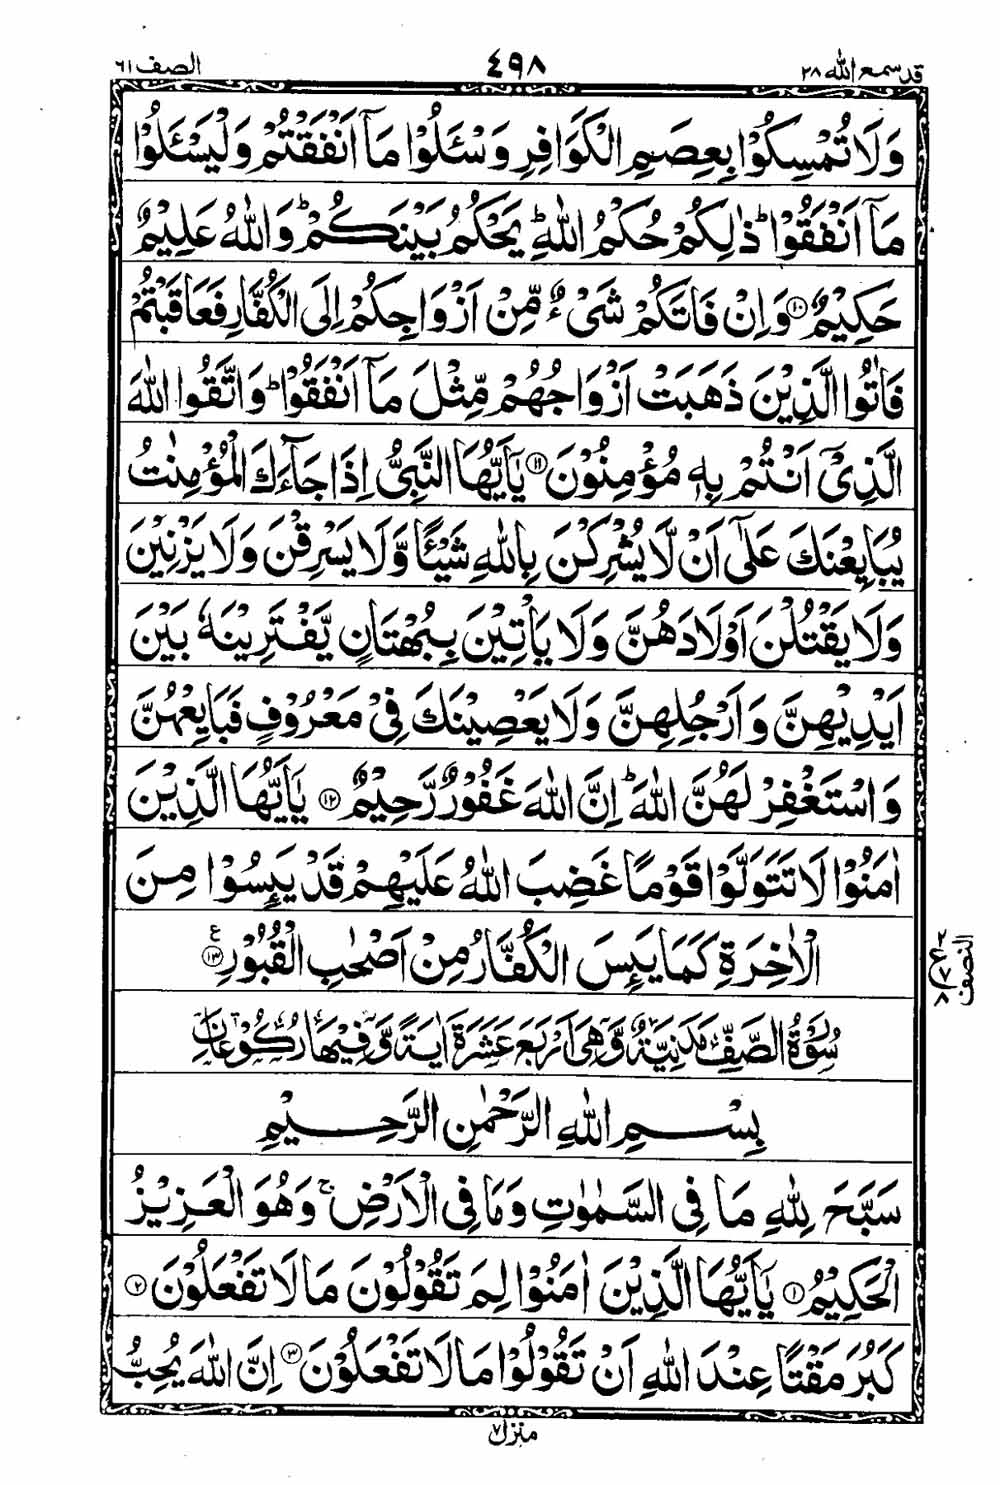 قد سمع الله ٢٨
٤٩٨
الصف ٦١
وَلَا تُمْسِكُوْا بِعِصَمِ الْكَوَافِرِ وَسْئَلُوْا مَآ اَنْفَقْتُمْ وَلْيَسْئَلُوْا
مَآ اَنْفَقُوْا ؕ ذٰلِكُمْ حُكْمُ اللّٰهِ ؕ يَحْكُمُ بَيْنَكُمْ ؕ وَاللّٰهُ عَلِيْمٌ
حَكِيْمٌ ۝۱۰ وَاِنْ فَاتَكُمْ شَىْءٌ مِّنْ اَزْوَاجِكُمْ اِلَى الْكُفَّارِ فَعَاقَبْتُمْ
فَاٰتُوا الَّذِيْنَ ذَهَبَتْ اَزْوَاجُهُمْ مِّثْلَ مَآ اَنْفَقُوْا ؕ وَاتَّقُوا اللّٰهَ
الَّذِىْٓ اَنْتُمْ بِهٖ مُؤْمِنُوْنَ ۝۱۱ يٰٓاَيُّهَا النَّبِىُّ اِذَا جَآءَكَ الْمُؤْمِنٰتُ
يُبَايِعْنَكَ عَلٰٓى اَنْ لَّا يُشْرِكْنَ بِاللّٰهِ شَيْـًٔا وَّلَا يَسْرِقْنَ وَلَا يَزْنِيْنَ
وَلَا يَقْتُلْنَ اَوْلَادَهُنَّ وَلَا يَاْتِيْنَ بِبُهْتَانٍ يَّفْتَرِيْنَهٗ بَيْنَ
اَيْدِيْهِنَّ وَاَرْجُلِهِنَّ وَلَا يَعْصِيْنَكَ فِىْ مَعْرُوْفٍ فَبَايِعْهُنَّ
وَاسْتَغْفِرْ لَهُنَّ اللّٰهَ ؕ اِنَّ اللّٰهَ غَفُوْرٌ رَّحِيْمٌ ۝۱۲ يٰٓاَيُّهَا الَّذِيْنَ
اٰمَنُوْا لَا تَتَوَلَّوْا قَوْمًا غَضِبَ اللّٰهُ عَلَيْهِمْ قَدْ يَئِسُوْا مِنَ
الْاٰخِرَةِ كَمَا يَئِسَ الْكُفَّارُ مِنْ اَصْحٰبِ الْقُبُوْرِ ۝۱۳ ع
سُوْرَةُ الصَّفِّ مَدَنِيَّةٌ وَّهِىَ اَرْبَعَ عَشَرَةَ اٰيَةً وَّفِيْهَا رُكُوْعَانِ
بِسْمِ اللّٰهِ الرَّحْمٰنِ الرَّحِيْمِ
سَبَّحَ لِلّٰهِ مَا فِى السَّمٰوٰتِ وَمَا فِى الْاَرْضِ ۚ وَهُوَ الْعَزِيْزُ
الْحَكِيْمُ ۝۱ يٰٓاَيُّهَا الَّذِيْنَ اٰمَنُوْا لِمَ تَقُوْلُوْنَ مَا لَا تَفْعَلُوْنَ ۝۲
كَبُرَ مَقْتًا عِنْدَ اللّٰهِ اَنْ تَقُوْلُوْا مَا لَا تَفْعَلُوْنَ ۝۳ اِنَّ اللّٰهَ يُحِبُّ
النصف
٢
ع
٧
٨
منزل ٧